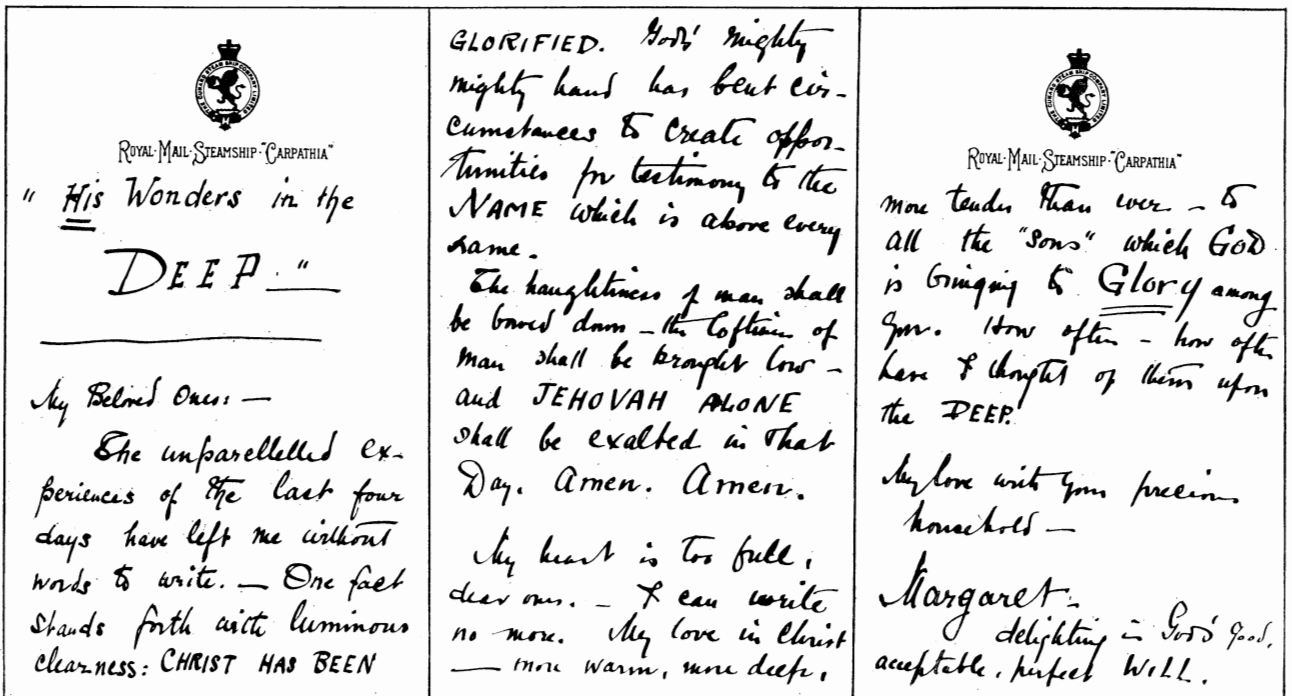 THE CUNARD STEAM SHIP COMPANY LIMITED
ROYAL·MAIL·STEAMSHIP·"CARPATHIA"
" His Wonders in the
DEEP."
My Beloved Ones: —
The unparellelled ex-
periences of the last four
days have left me without
words to write. — One fact
stands forth with luminous
clearness: CHRIST HAS BEEN
GLORIFIED. God's mighty
mighty hand has bent cir-
cumstances to create oppor-
tunities for testimony to the
NAME which is above every
name.
The haughtiness of man shall
be bowed down — the loftiness of
man shall be brought low —
and JEHOVAH ALONE
shall be exalted in that
Day. Amen. Amen.
My heart is too full,
dear ones. — I can write
no more. My love in Christ
— more warm, more deep,
THE CUNARD STEAM SHIP COMPANY LIMITED
ROYAL·MAIL·STEAMSHIP·"CARPATHIA"
more tender than ever — to
all the "sons" which GOD
is bringing to Glory among
you. How often — how often
have I thought of them upon
the DEEP.
My love with your precious
household —
Margaret —
delighting in God's good,
acceptable, perfect WILL.